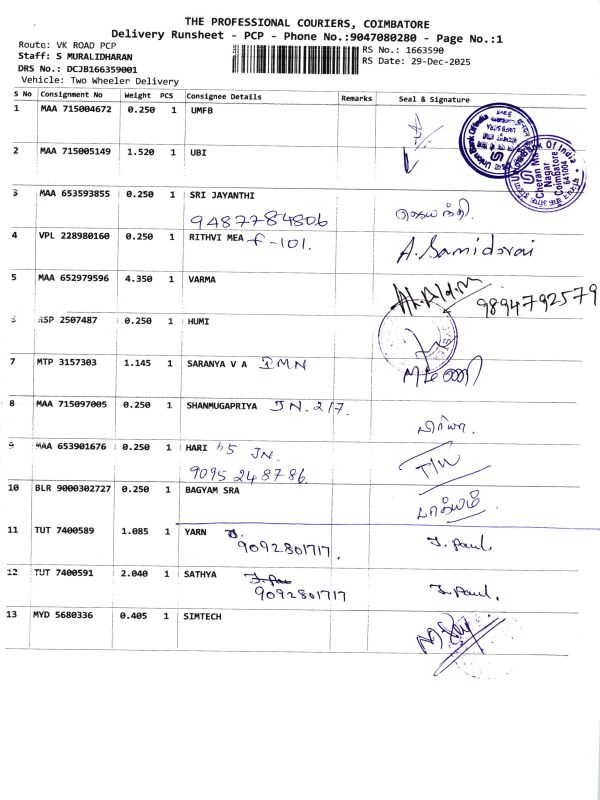 THE PROFESSIONAL COURIERS, COIMBATORE
Delivery Runsheet - PCP - Phone No.:9047080280 - Page No.:1
Route: VK ROAD PCP
Staff: S MURALIDHARAN
DRS No.: DCJB166359001
Vehicle: Two Wheeler Delivery
RS No.: 1663590
RS Date: 29-Dec-2025
S No Consignment No Weight PCS Consignee Details Remarks Seal & Signature
1 MAA 715004672 0.250 1 UMFB
2 MAA 715005149 1.520 1 UBI
Union Bank Of India
Bank Of India
Cheran Ma
Nagar
Coimbatore
641004
3 MAA 653593855 0.250 1 SRI JAYANTHI
9487784806 ஜெயந்தி.
4 VPL 228980160 0.250 1 RITHVI MEA f-101. A. Samidorai
5 MAA 652979596 4.350 1 VARMA
9894792579
6 RSP 2507487 0.250 1 HUMI
7 MTP 3157303 1.145 1 SARANYA V A IMN
8 MAA 715097005 0.250 1 SHANMUGAPRIYA JN. 217.
பிரியா.
9 MAA 653901676 0.250 1 HARI 45 JN.
9095248786.
10 BLR 9000302727 0.250 1 BAGYAM SRA
பாக்யம்
11 TUT 7400589 1.085 1 YARN
9092801717. J. Paul.
12 TUT 7400591 2.040 1 SATHYA
9092801717 J. Paul.
13 MYD 5680336 0.405 1 SIMTECH